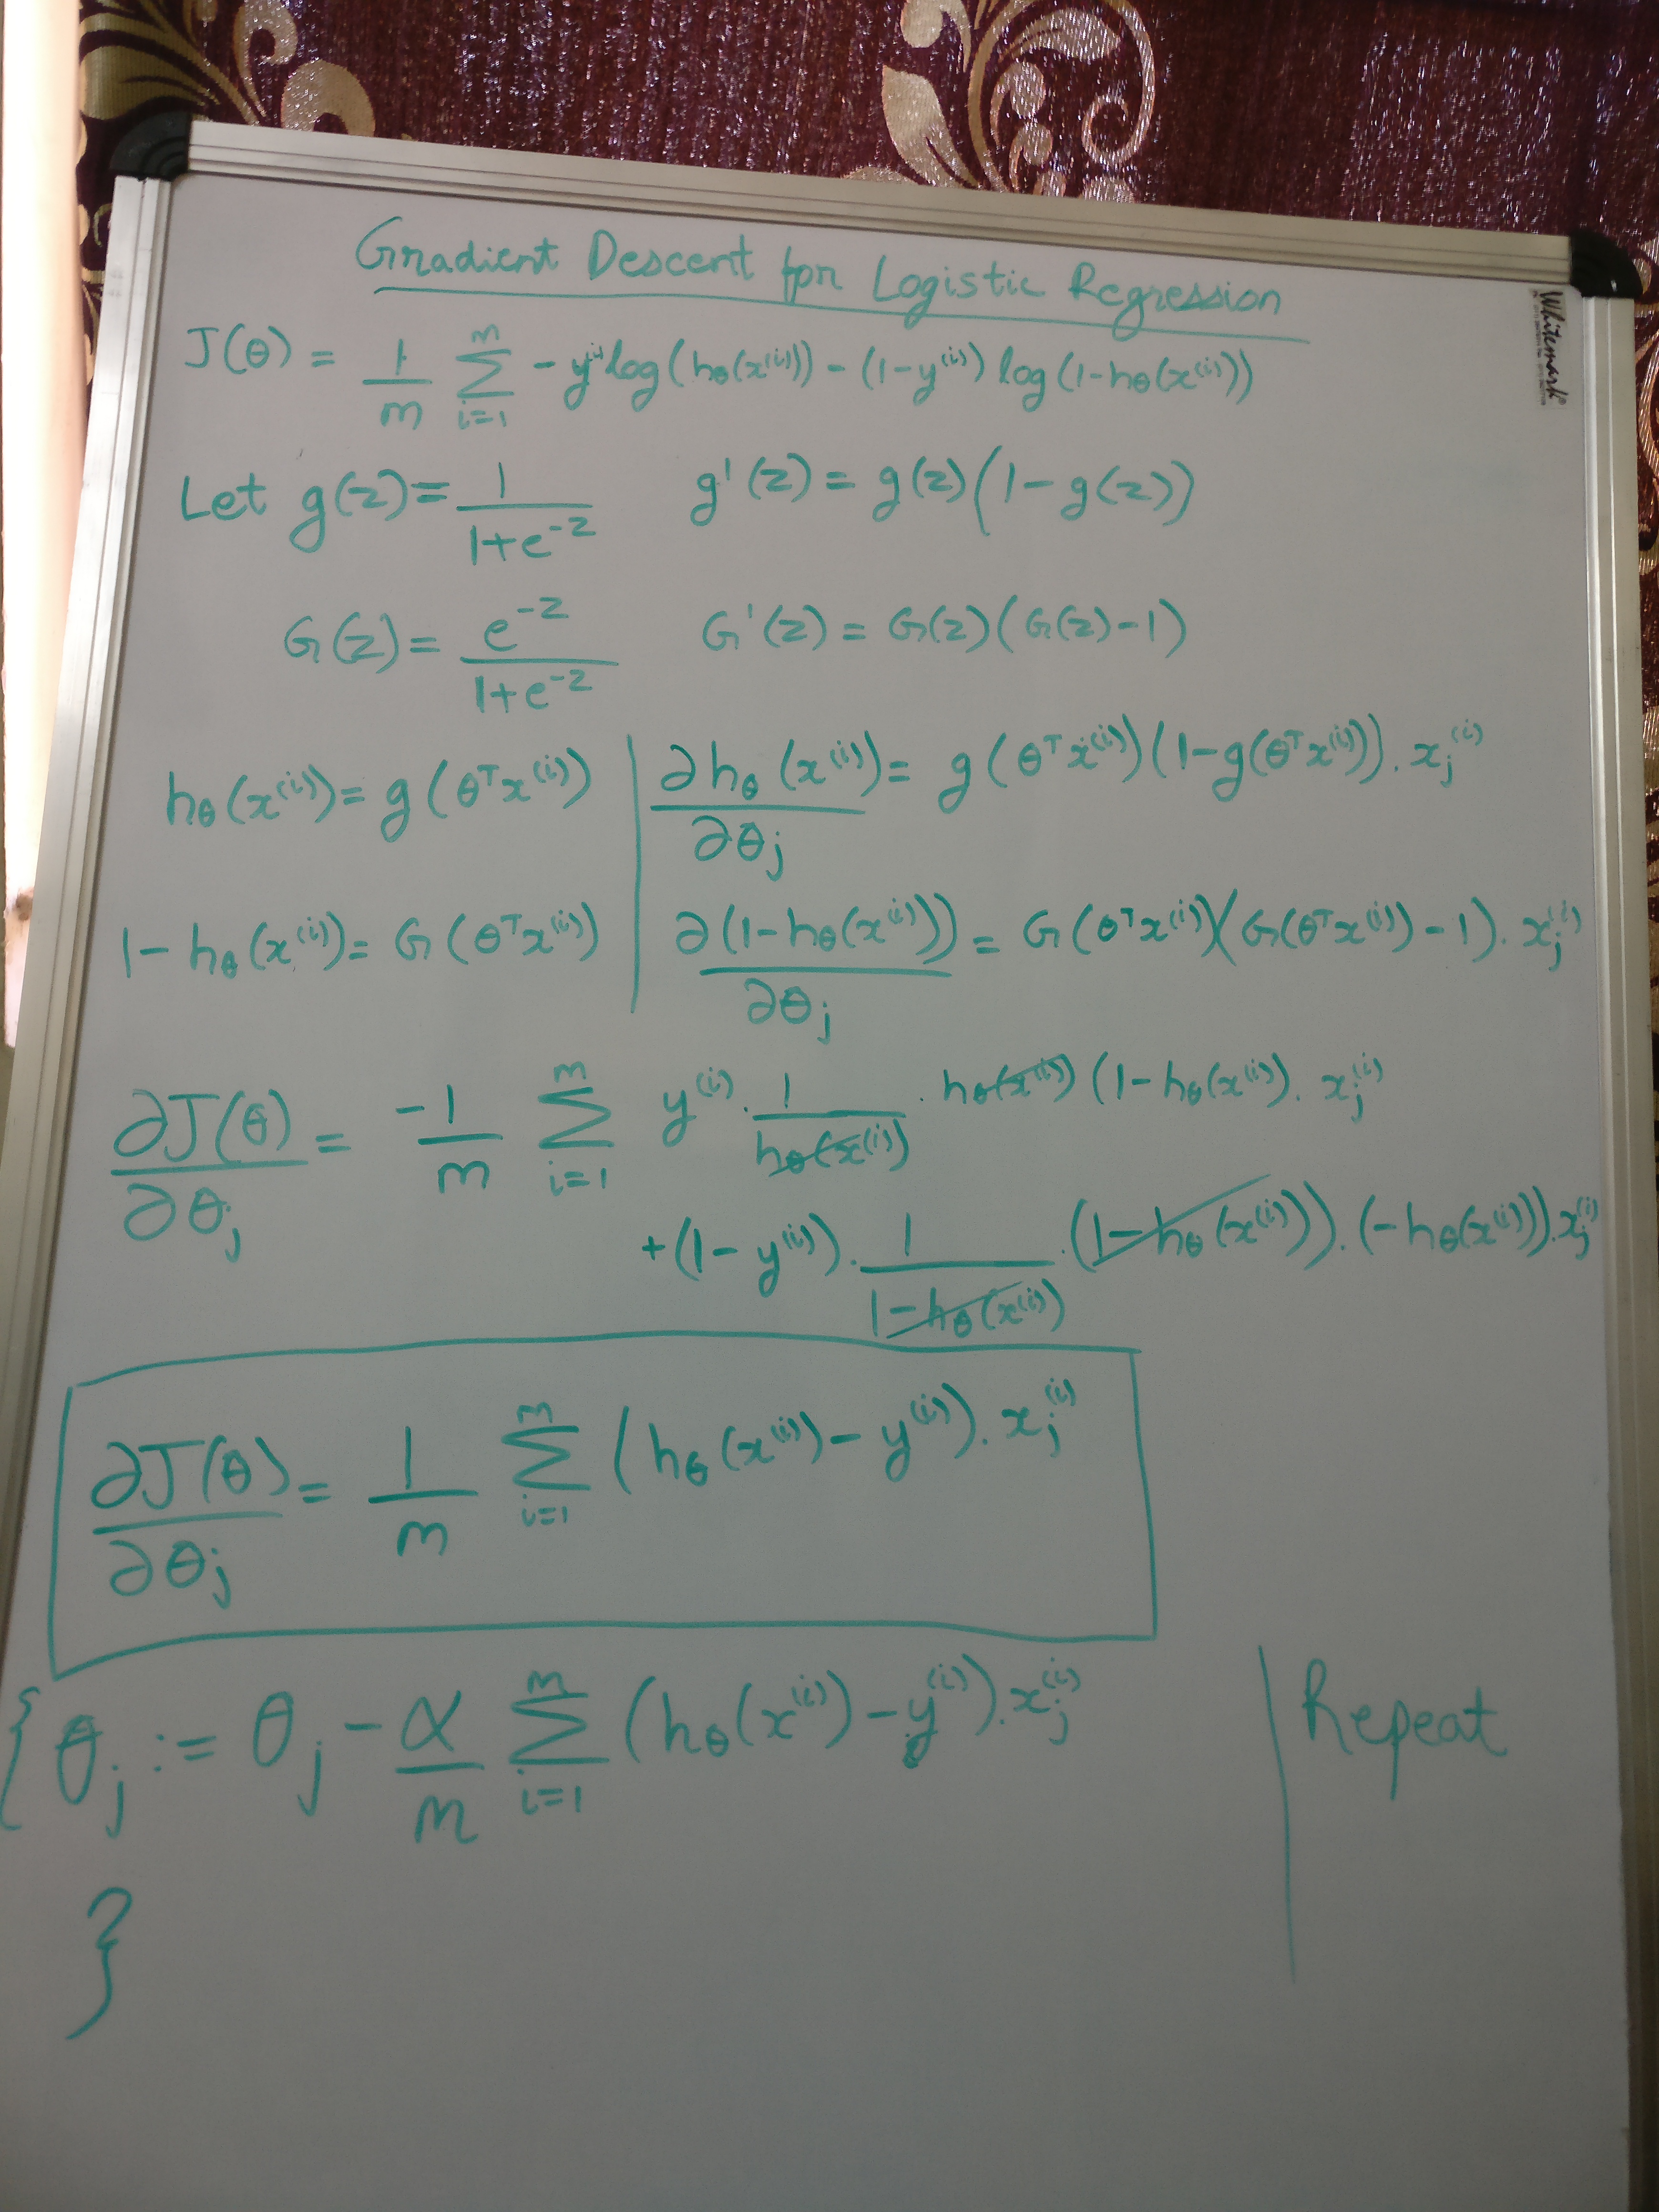 Gradient Descent for Logistic Regression
Whitemark®
J(θ) = 1/m Σ_{i=1}^{m} - y^{(i)} log(h_θ(x^{(i)})) - (1-y^{(i)}) log(1-h_θ(x^{(i)}))
Let g(z) = 1/(1+e^{-z})    g'(z) = g(z)(1-g(z))
G(z) = e^{-z}/(1+e^{-z})    G'(z) = G(z)(G(z)-1)
h_θ(x^{(i)}) = g(θ^T x^{(i)}) | ∂h_θ(x^{(i)})/∂θ_j = g(θ^T x^{(i)})(1-g(θ^T x^{(i)})). x_j^{(i)}
1-h_θ(x^{(i)}) = G(θ^T x^{(i)}) | ∂(1-h_θ(x^{(i)}))/∂θ_j = G(θ^T x^{(i)})(G(θ^T x^{(i)})-1). x_j^{(i)}
∂J(θ)/∂θ_j = -1/m Σ_{i=1}^{m} y^{(i)}. 1/h_θ(x^{(i)}) . h_θ(x^{(i)}) (1-h_θ(x^{(i)}). x_j^{(i)}
+(1-y^{(i)}). 1/(1-h_θ(x^{(i)}) .(1-h_θ(x^{(i)})).(-h_θ(x^{(i)})).x_j^{(i)}
∂J(θ)/∂θ_j = 1/m Σ_{i=1}^{m} (h_θ(x^{(i)}) - y^{(i)}). x_j^{(i)}
{ θ_j := θ_j - α/m Σ_{i=1}^{m} (h_θ(x^{(i)}) - y^{(i)}).x_j^{(i)} | Repeat
}